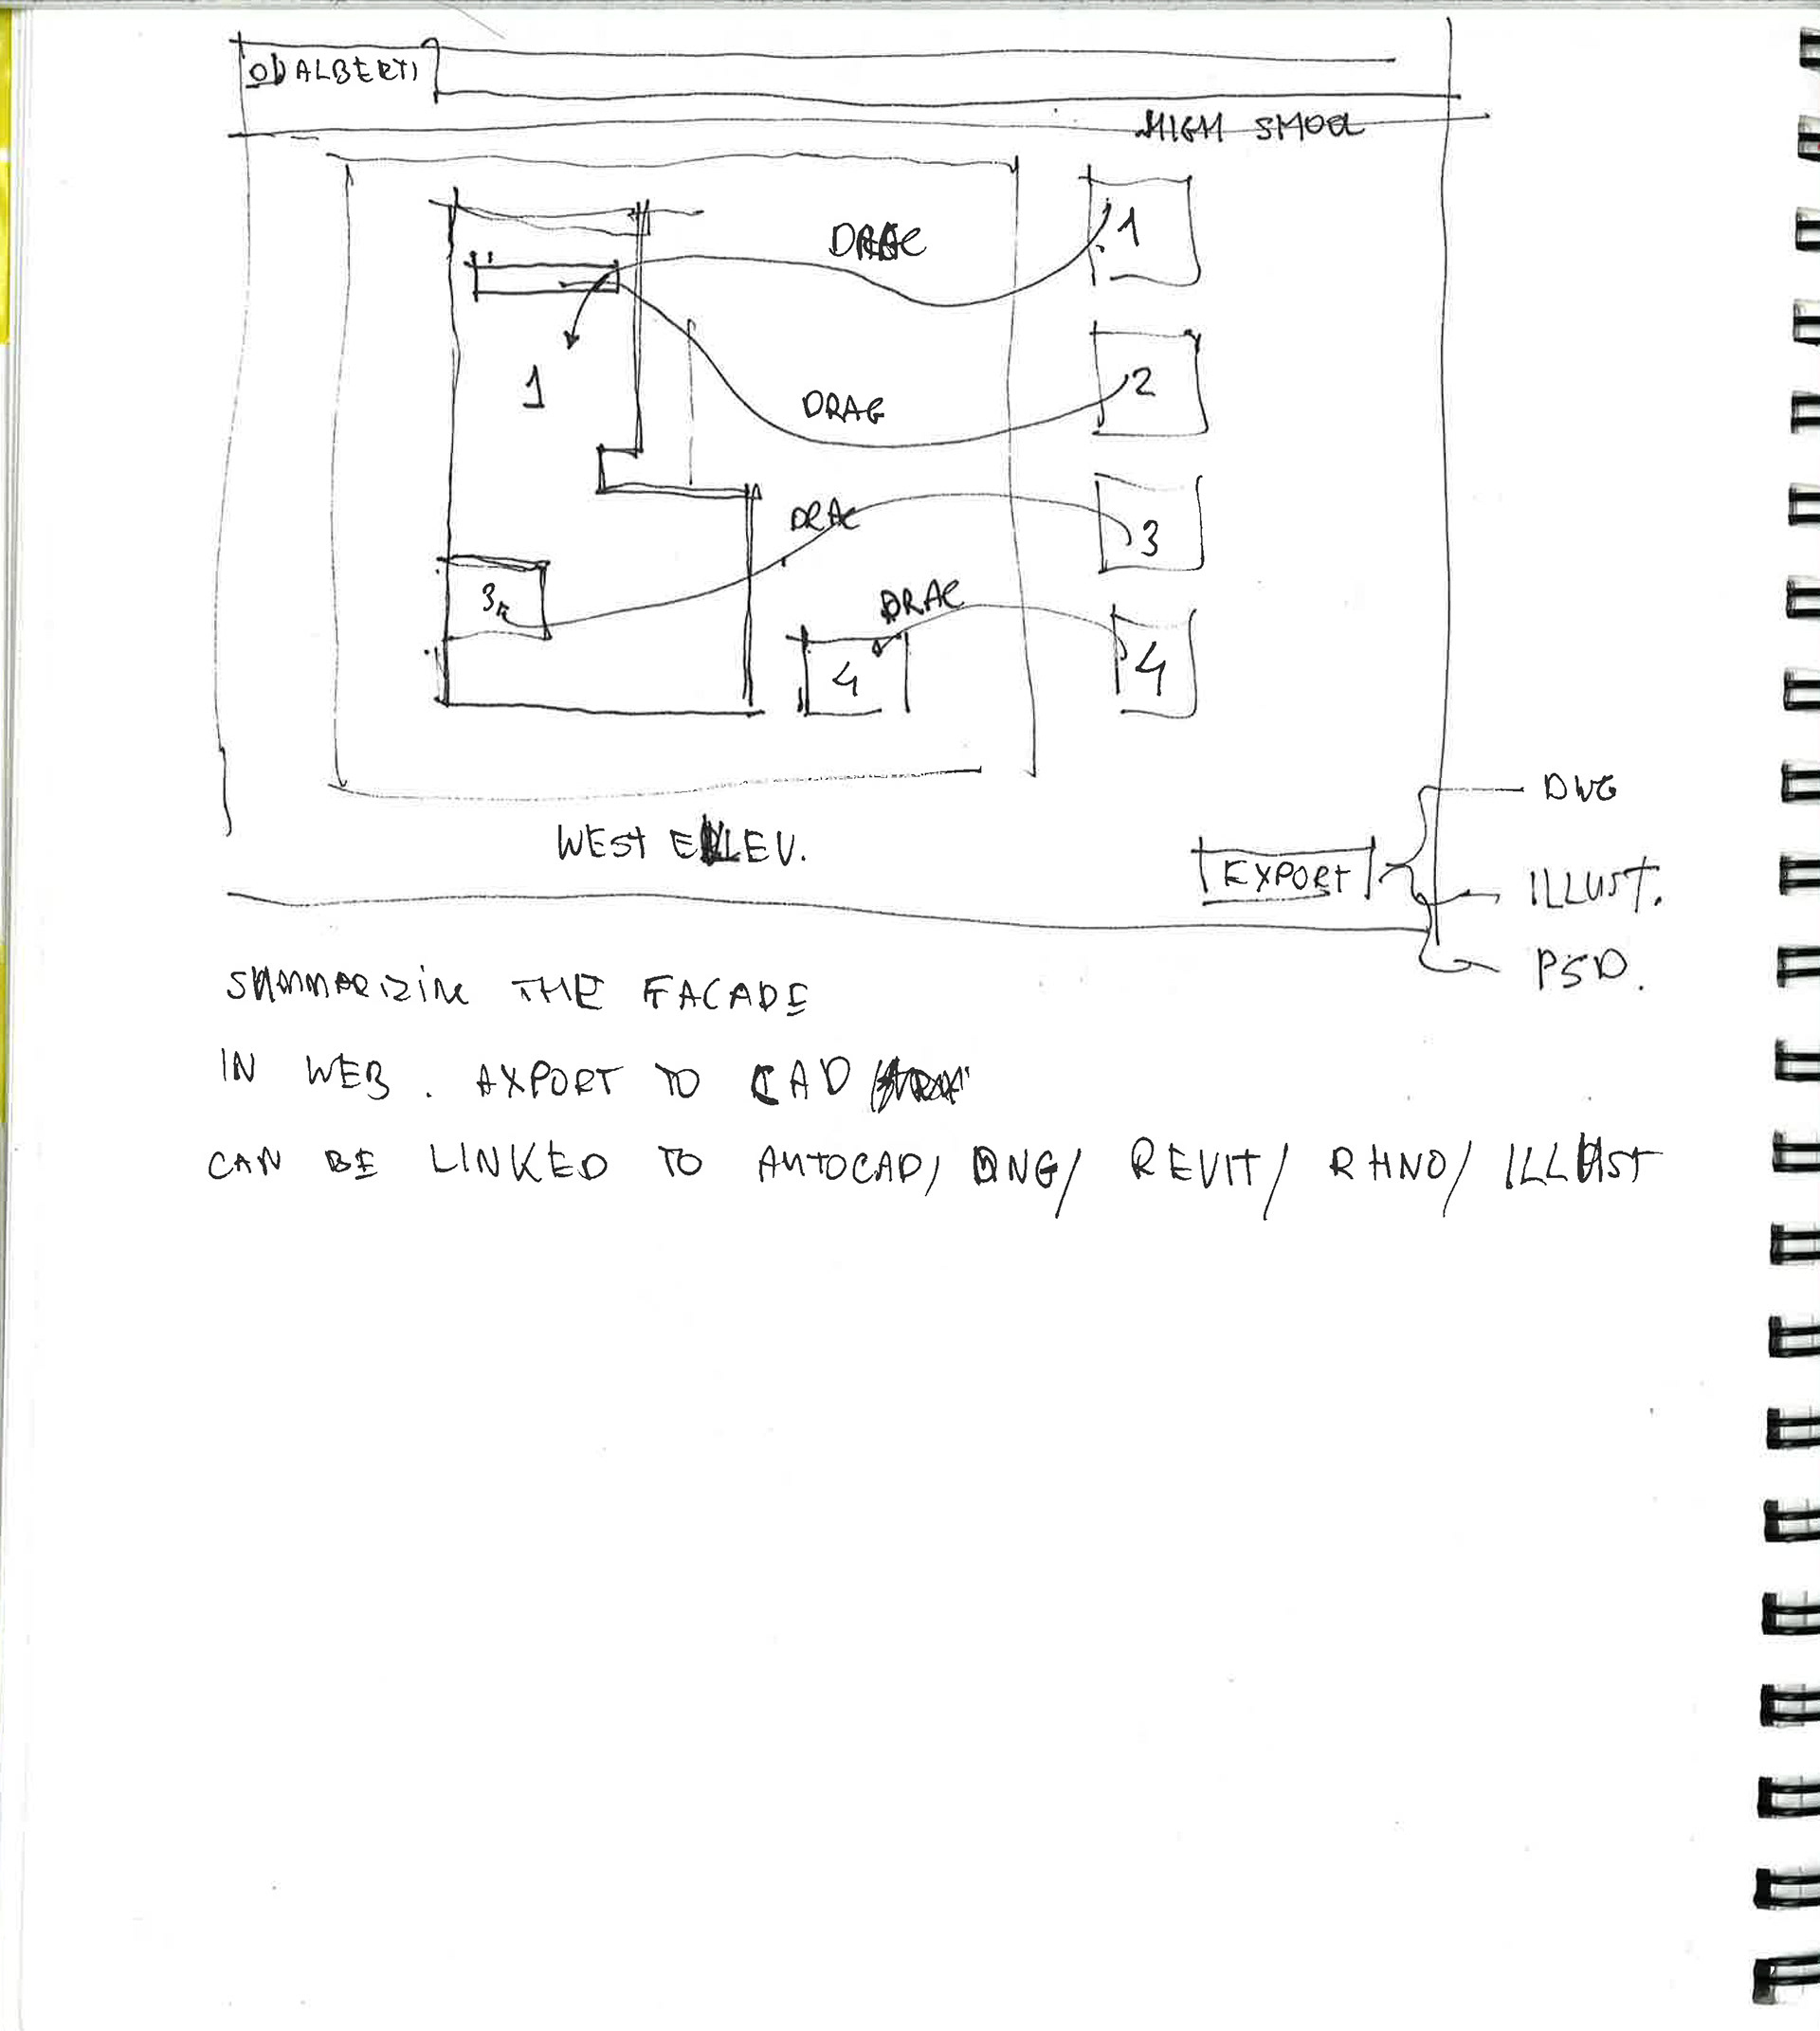 ALBERTI
HIGH SHOOL
1
DRAG
2
1
DRAG
DRAG
3
3
DRAG
4
4
DWG
WEST ELEV.
EXPORT
ILLUST.
PSD.
SUMMARIZING THE FACADE
IN WEB. AXPORT TO CAD
CAN BE LINKED TO AUTOCAD/ DNG/ REVIT/ RHNO/ ILLUST